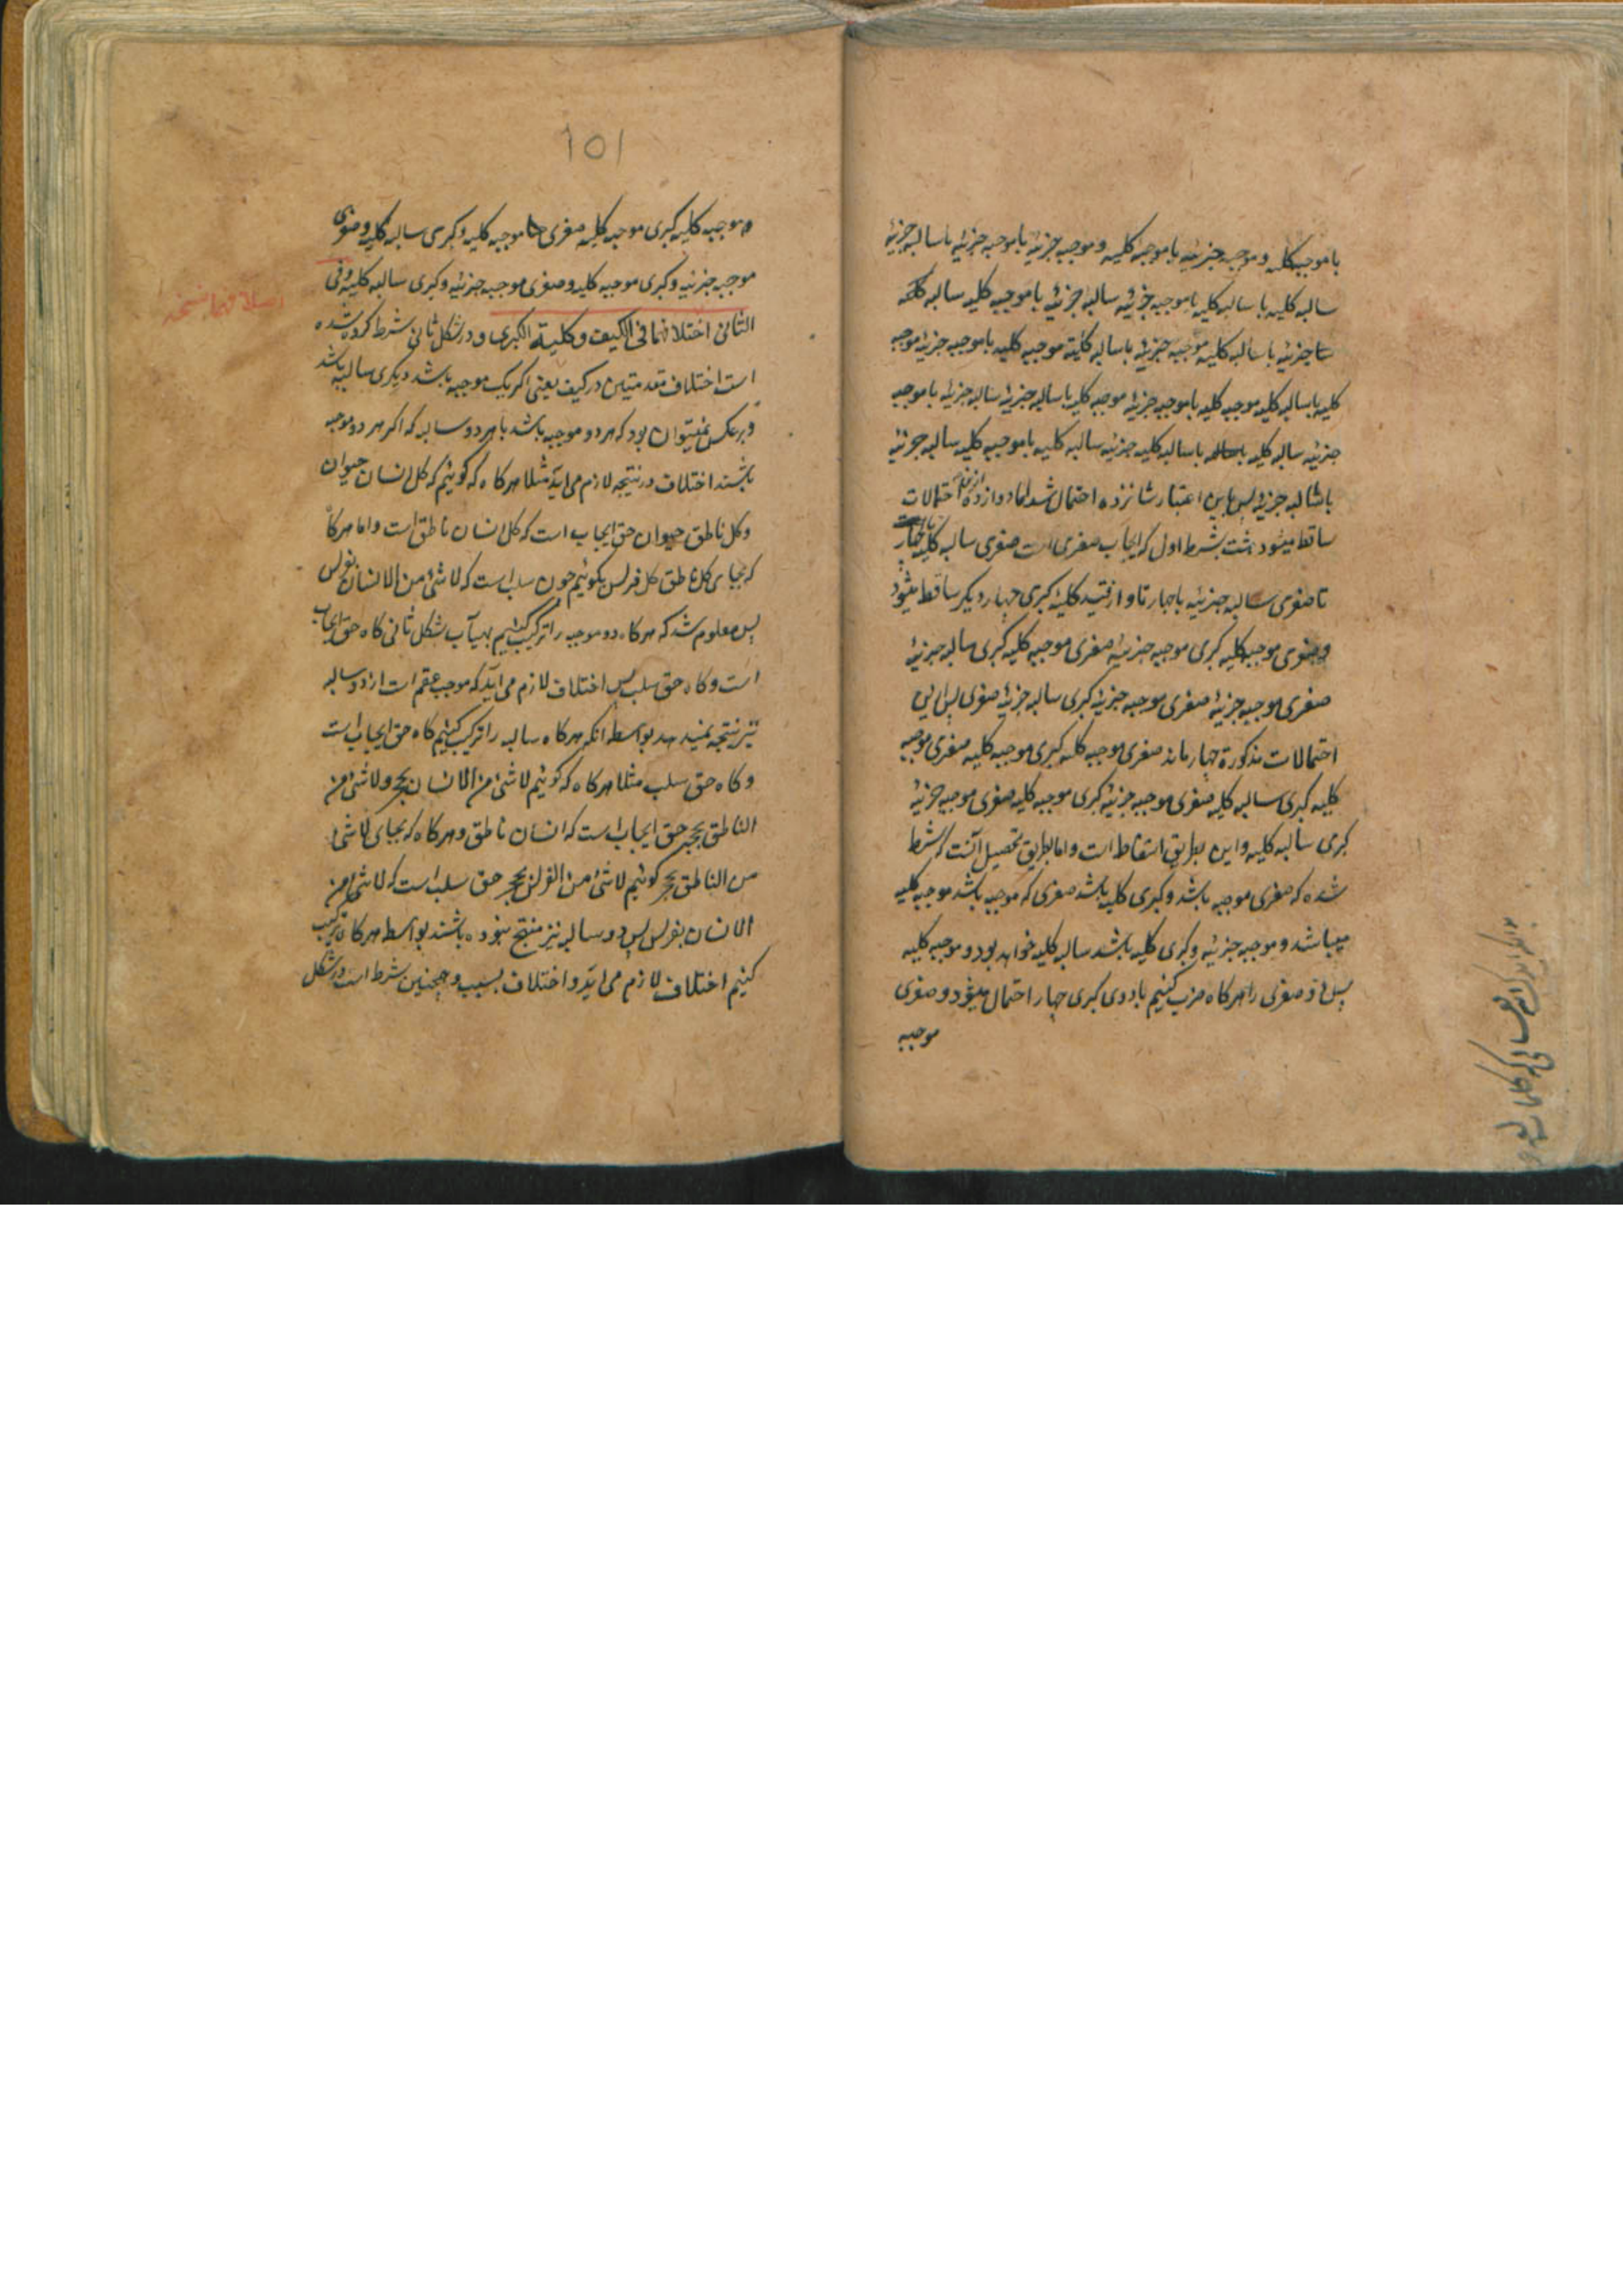 با موجبه کلیه و موجبه جزئیه با موجبه کلیه و موجبه جزئیه با موجبه جزئیه با سالبه جزئیه
سالبه کلیه با سالبه کلیه با موجبه جزئیه سالبه جزئیه با موجبه کلیه سالبه کلیه
با سالبه کلیه موجبه جزئیه با سالبه کلیة موجبه کلیه با موجبه جزئیه موجبه
کلیه با سالبه کلیه موجبه کلیه با موجبه جزئیه موجبه کلیه با سالبه جزئیه سالبه جزئیه با موجبه
جزئیه سالبه کلیه با سالبه کلیه جزئیه سالبه کلیه با موجبه کلیه سالبه جزئیه
با سالبه جزئیه پس باین اعتبار شانزده احتمال شد اما دوازده ازین احتمالات
ساقط میشود هشت بشرط اول که ایجاب صغری است صغری سالبه کلیه با چهار
تا صغری سالبه جزئیه با چهار تا و از قید کلیة کبری چهار دیگر ساقط میشود
و صغری موجبه کلیه کبری موجبه جزئیه صغری موجبه کلیه کبری سالبه جزئیه
صغری موجبه جزئیه صغری موجبه جزئیه کبری سالبه جزئیه صغری پس ازین
احتمالات مذکورة چهار ماند صغری موجبه کلیه کبری موجبه کلیه صغری موجبه
کلیه کبری سالبه کلیه صغری موجبه جزئیه کبری موجبه کلیه صغری موجبه جزئیه
کبری سالبه کلیه و این بطریق اسقاط است و اما بطریق تحصیل آنست که شرط
شده که صغری موجبه باشد و کبری کلیه باشد صغری که موجبه باشد موجبه کلیه
میباشد و موجبه جزئیه و کبری کلیه باشد سالبه کلیه خواهد بود و موجبه کلیه
پس دو صغری را هر کاه ضرب کنیم با دوی کبری چهار احتمال میشود و صغری
موجبه
101
موجبه کلیه کبری موجبه کلیه صغری موجبه کلیه و کبری سالبه کلیه و صغری
موجبه جزئیه و کبری موجبه کلیه و صغری موجبه جزئیه و کبری سالبه کلیه وفی
الثانی اختلافهما فی الکیف و کلیة الکبری و در شکل ثانی شرط کرده شده
است اختلاف مقدمتین در کیف یعنی اکر یک موجبه باشد دیکری سالبه باشد
و برعکس نمیتوان بود که هر دو موجبه باشد یا هر دو سالبه که اکر هر دو موجبه
باشند اختلاف در نتیجه لازم می اید مثلا هر کاه که کوئیم که کل انسان حیوان
و کل ناطق حیوان حق ایجاب است که کل انسان ناطق است و اما هر کاه
که بجای کل ناطق کل فرس بکوئیم حیوان سلب است که لا شئ من الانسان بفرس
پس معلوم شد که هر کاه دو موجبه را ترکیب کنیم بهیأت شکل ثانی کاه حق ایجاب
است و کاه حق سلب پس اختلاف لازم می اید که موجب عقم است از دو سالبه
نیز نتیجه نمیدهد بواسطه انکه هر کاه سالبه را ترکیب کنیم کاه حق ایجاب است
و کاه حق سلب مثلا هر کاه که کوئیم لا شئ من الانسان بحجر و لا شئ من
الناطق بحجر حق ایجاب است که انسان ناطق و هر کاه که بجای لا شئ
من الناطق بحجر کوئیم لا شئ من الفرس بحجر حق سلب است که لا شئ من
الانسان بفرس پس دو سالبه نیز منتج نبوده باشند بواسطه هر کاه ترکیب
کنیم اختلاف لازم می اید و اختلاف بسبب و همچنین شرط است در شکل
اختلافهما نسخه